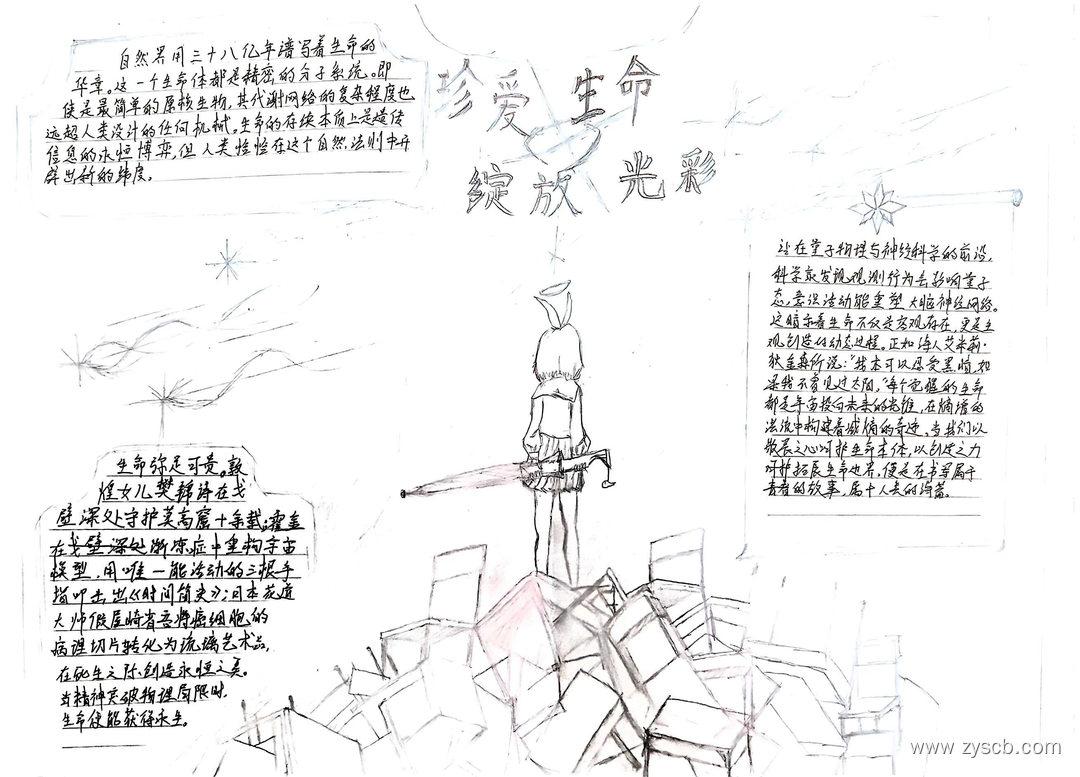 珍爱生命
绽放光彩
自然界用三十八亿年谱写着生命的
华章。这一个生命体都是精密的分子系统。即
使是最简单的原核生物,其代谢网络的复杂程度也
远超人类设计的任何机械。生命的存续本质上是遗传
信息的永恒博弈,但人类恰恰在这个自然法则中开
辟出新的纬度。
站在量子物理与神经科学的前沿,
科学家发现观测行为会影响量子
态,意识活动能重塑大脑神经网络。
这暗示着生命不仅是客观存在,更是主
观创造的动态过程。正如诗人艾米莉·
狄金森所说:“我本可以忍受黑暗,如
果我不曾见过太阳。”每个觉醒的生命
都是宇宙投向未来的光锥,在熵增的
法流中构建着减熵的奇迹。当我们以
敬畏之心呵护生命本体,以创造之力
呵护拓展生命边界,便是在书写属于
青春的故事,属于人类的诗篇。
生命弥足可贵。敦
煌女儿樊锦诗在戈
壁深处守护莫高窟十余载;霍金
在戈壁深处渐冻症中重构宇宙
模型,用唯一能活动的三根手
指叩击出《时间简史》;日本花道
大师假屋崎省吾将癌细胞的
病理切片转化为琉璃艺术品,
在死生之际创造永恒之美。
当精神突破物理局限时,
生命便能获得永生。
www.zyscb.com